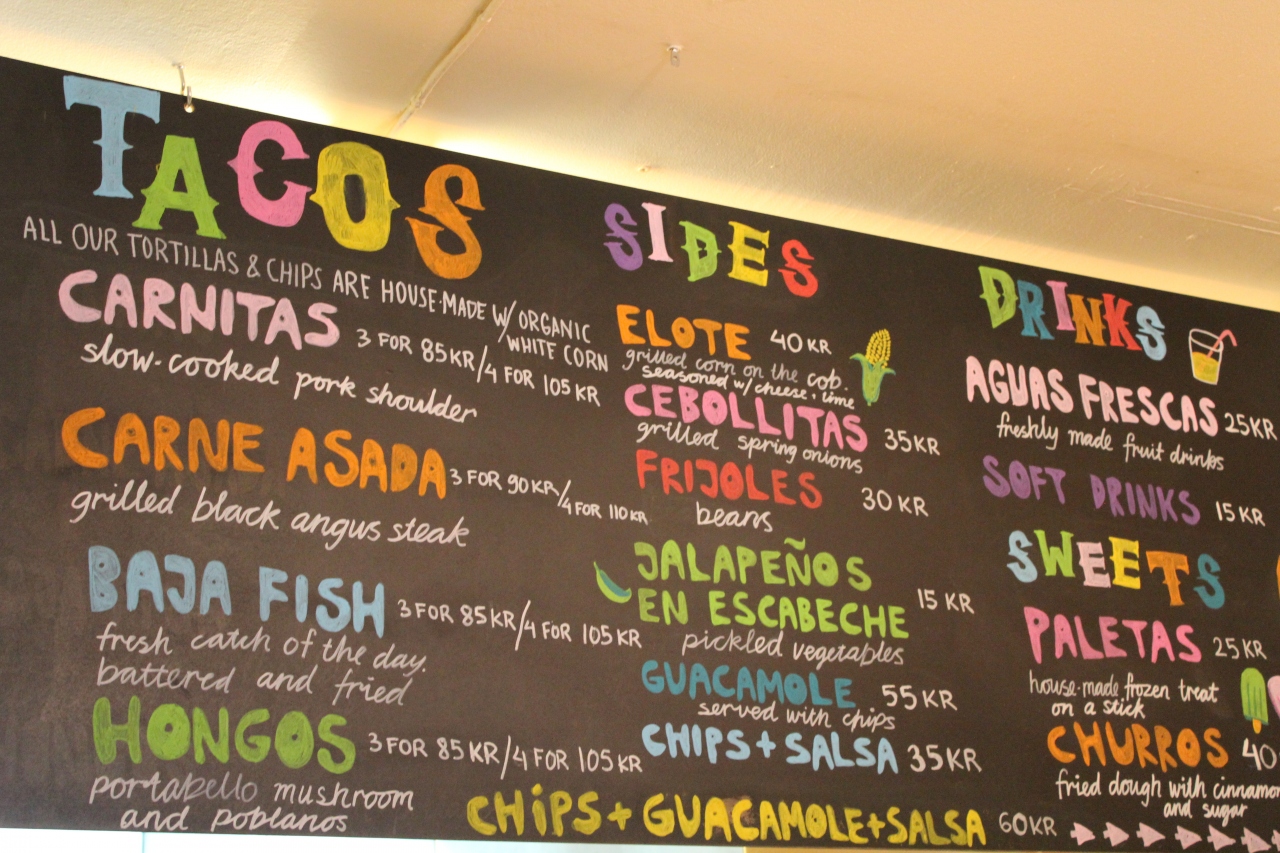 TACOS
ALL OUR TORTILLAS & CHIPS ARE HOUSE-MADE W/ ORGANIC
WHITE CORN
CARNITAS 3 FOR 85KR/4 FOR 105 KR
slow-cooked pork shoulder
CARNE ASADA 3 FOR 90KR/4 FOR 110KR
grilled black angus steak
BAJA FISH 3 FOR 85KR/4 FOR 105 KR
fresh catch of the day.
battered and fried
HONGOS 3 FOR 85 KR/4 FOR 105 KR
portabello mushroom
and poblanos
SIDES
ELOTE 40 KR
grilled corn on the cob.
seasoned w/ cheese + lime
CEBOLLITAS 35KR
grilled spring onions
FRIJOLES 30 KR
beans
JALAPEÑOS
EN ESCABECHE 15 KR
pickled vegetables
GUACAMOLE 55 KR
served with chips
CHIPS + SALSA 35KR
CHIPS + GUACAMOLE + SALSA 60KR
DRINKS
AGUAS FRESCAS 25KR
freshly made fruit drinks
SOFT DRINKS 15 KR
SWEETS
PALETAS 25 KR
house-made frozen treat
on a stick
CHURROS 40
fried dough with cinnamon
and sugar